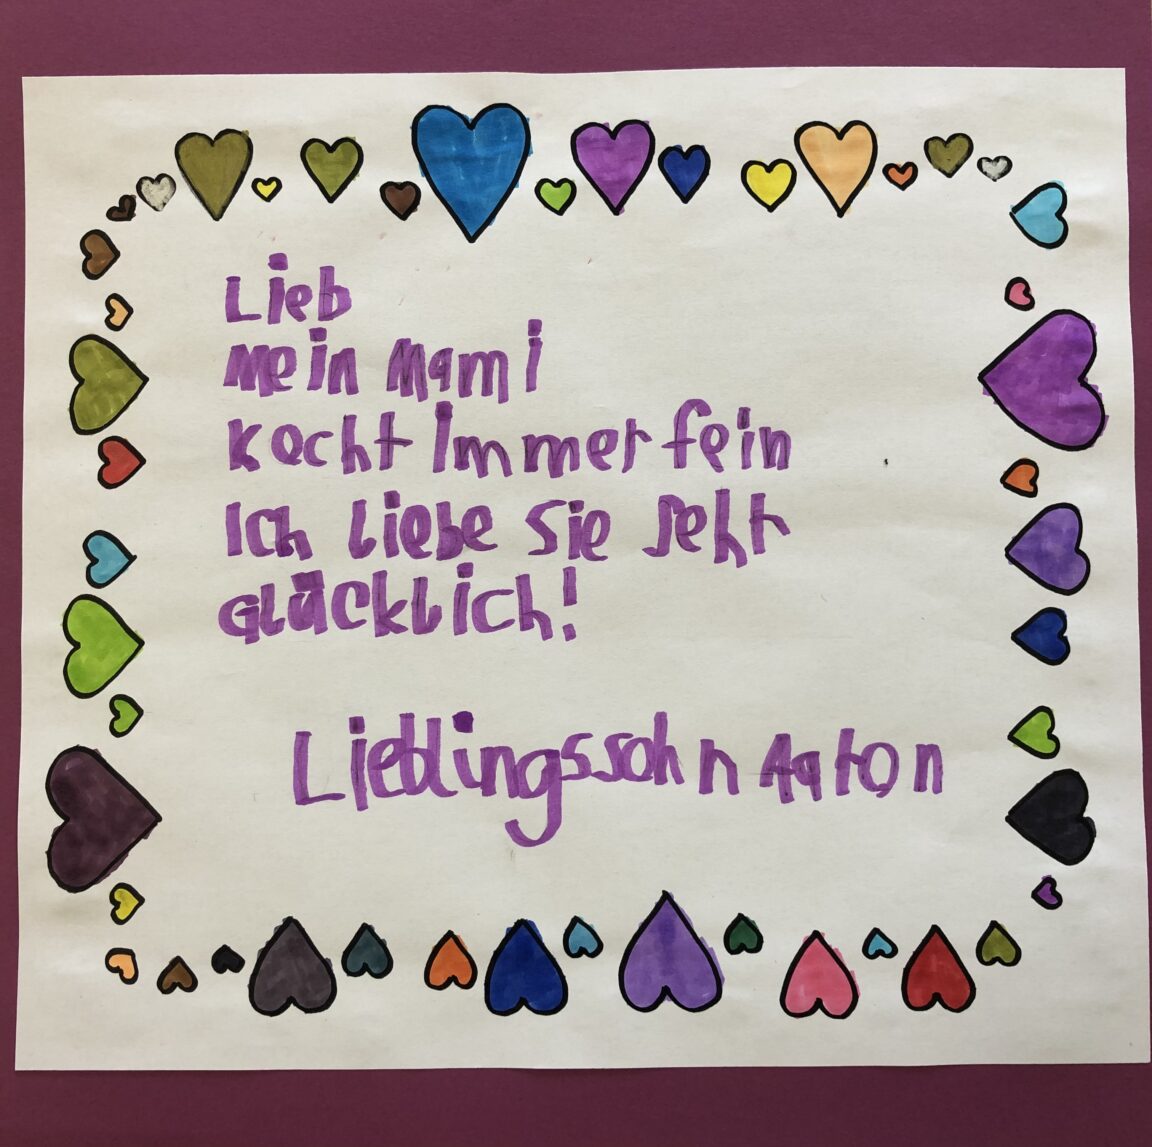 Lieb
Mein Mami
Kocht Immer fein
Ich liebe Sie Sehr
Glücklich!
Lieblingssohn Aaron